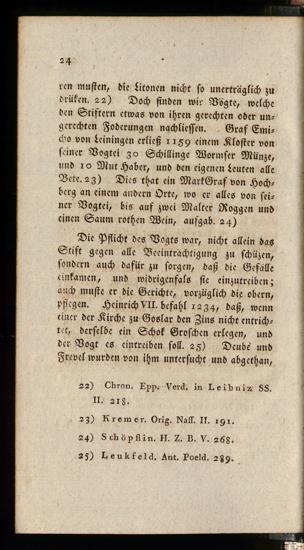 24
ren musten, die Litonen nicht so unerträglich zu
drüken. 22) Doch finden wir Vögte, welche
den Stiftern etwas von ihren gerechten oder un-
gerechten Foderungen nachliessen. Graf Emi-
cho von Leiningen erließ 1159 einem Kloster von
seiner Vogtei 30 Schillinge Wormser Münze,
und 10 Mut Haber, und den eigenen Leuten alle
Bete. 23) Dies that ein MarkGraf von Hoch-
berg an einem andern Orte, wo er alles von sei-
ner Vogtei, bis auf zwei Malter Roggen und
einen Saum rothen Wein, aufgab. 24)
Die Pflicht des Vogts war, nicht allein das
Stift gegen alle Beeinträchtigung zu schüzen,
sondern auch dafür zu sorgen, daß die Gefälle
einkamen, und widrigenfals sie einzutreiben;
auch muste er die Gerichte, vorzüglich die obern,
pflegen. Heinrich VII. befahl 1234, daß, wenn
einer der Kirche zu Goslar den Zins nicht entrich-
tet, derselbe ein Schok Groschen erlegen, und
der Vogt es eintreiben soll. 25) Deube und
Frevel wurden von ihm untersucht und abgethan,
22) Chron. Epp. Verd. in Leibniz SS.
II. 218.
23) Kremer. Orig. Naff. II. 191.
24) Schöpflin. H. Z. B. V. 268.
25) Leukfeld. Ant. Poeld. 289.